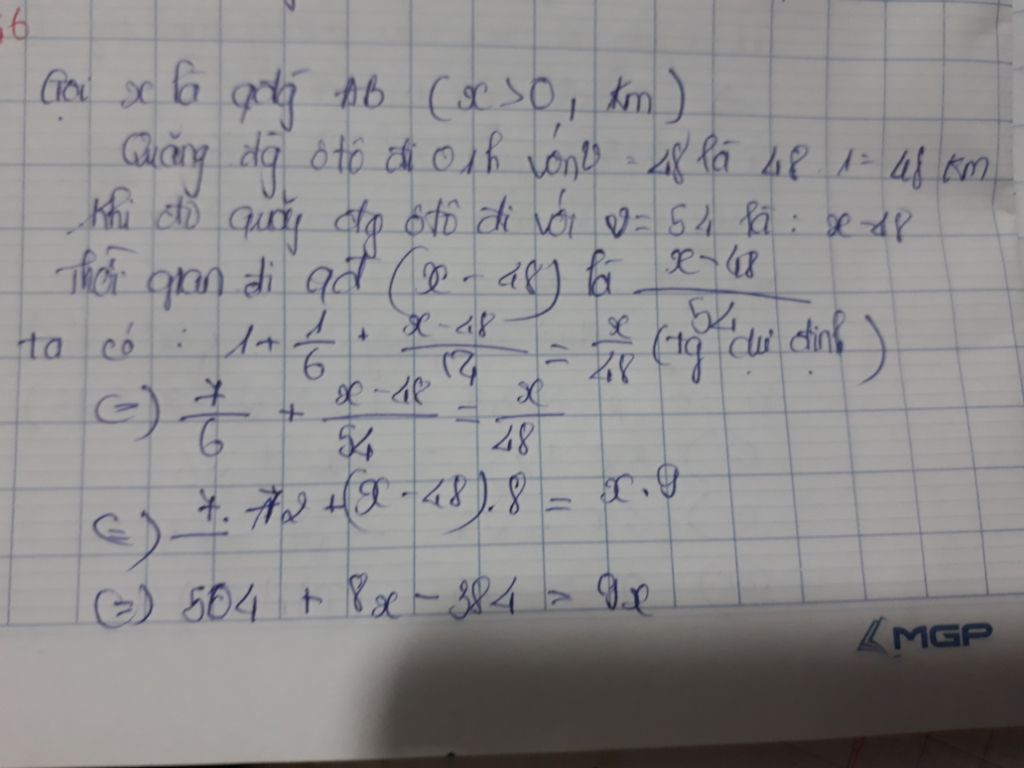 56
Gọi x là qđg AB (x > 0, km)
Quãng đg ôtô đi 0 1h với v = 48 là 48 . 1 = 48 km
Khi đó quãg đg ôtô đi với v = 54 là : x - 48
Thời gian đi qđ (x - 48) là \frac{x - 48}{54}
ta có : 1 + \frac{1}{6} + \frac{x - 48}{54} = \frac{x}{48} (tg dự định)
(=) \frac{7}{6} + \frac{x - 48}{54} = \frac{x}{48}
(=) 7. 72 + (x - 48).8 = x.9
(=) 504 + 8x - 384 = 9x
MGP